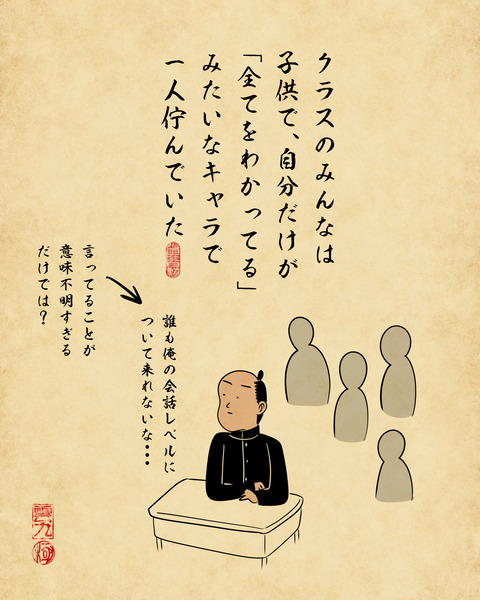 クラスのみんなは
子供で、自分だけが
「全てをわかってる」
みたいなキャラで
一人佇んでいた
誰も俺の会話レベルに
ついて来れないな・・・
言ってることが
意味不明すぎる
だけでは？